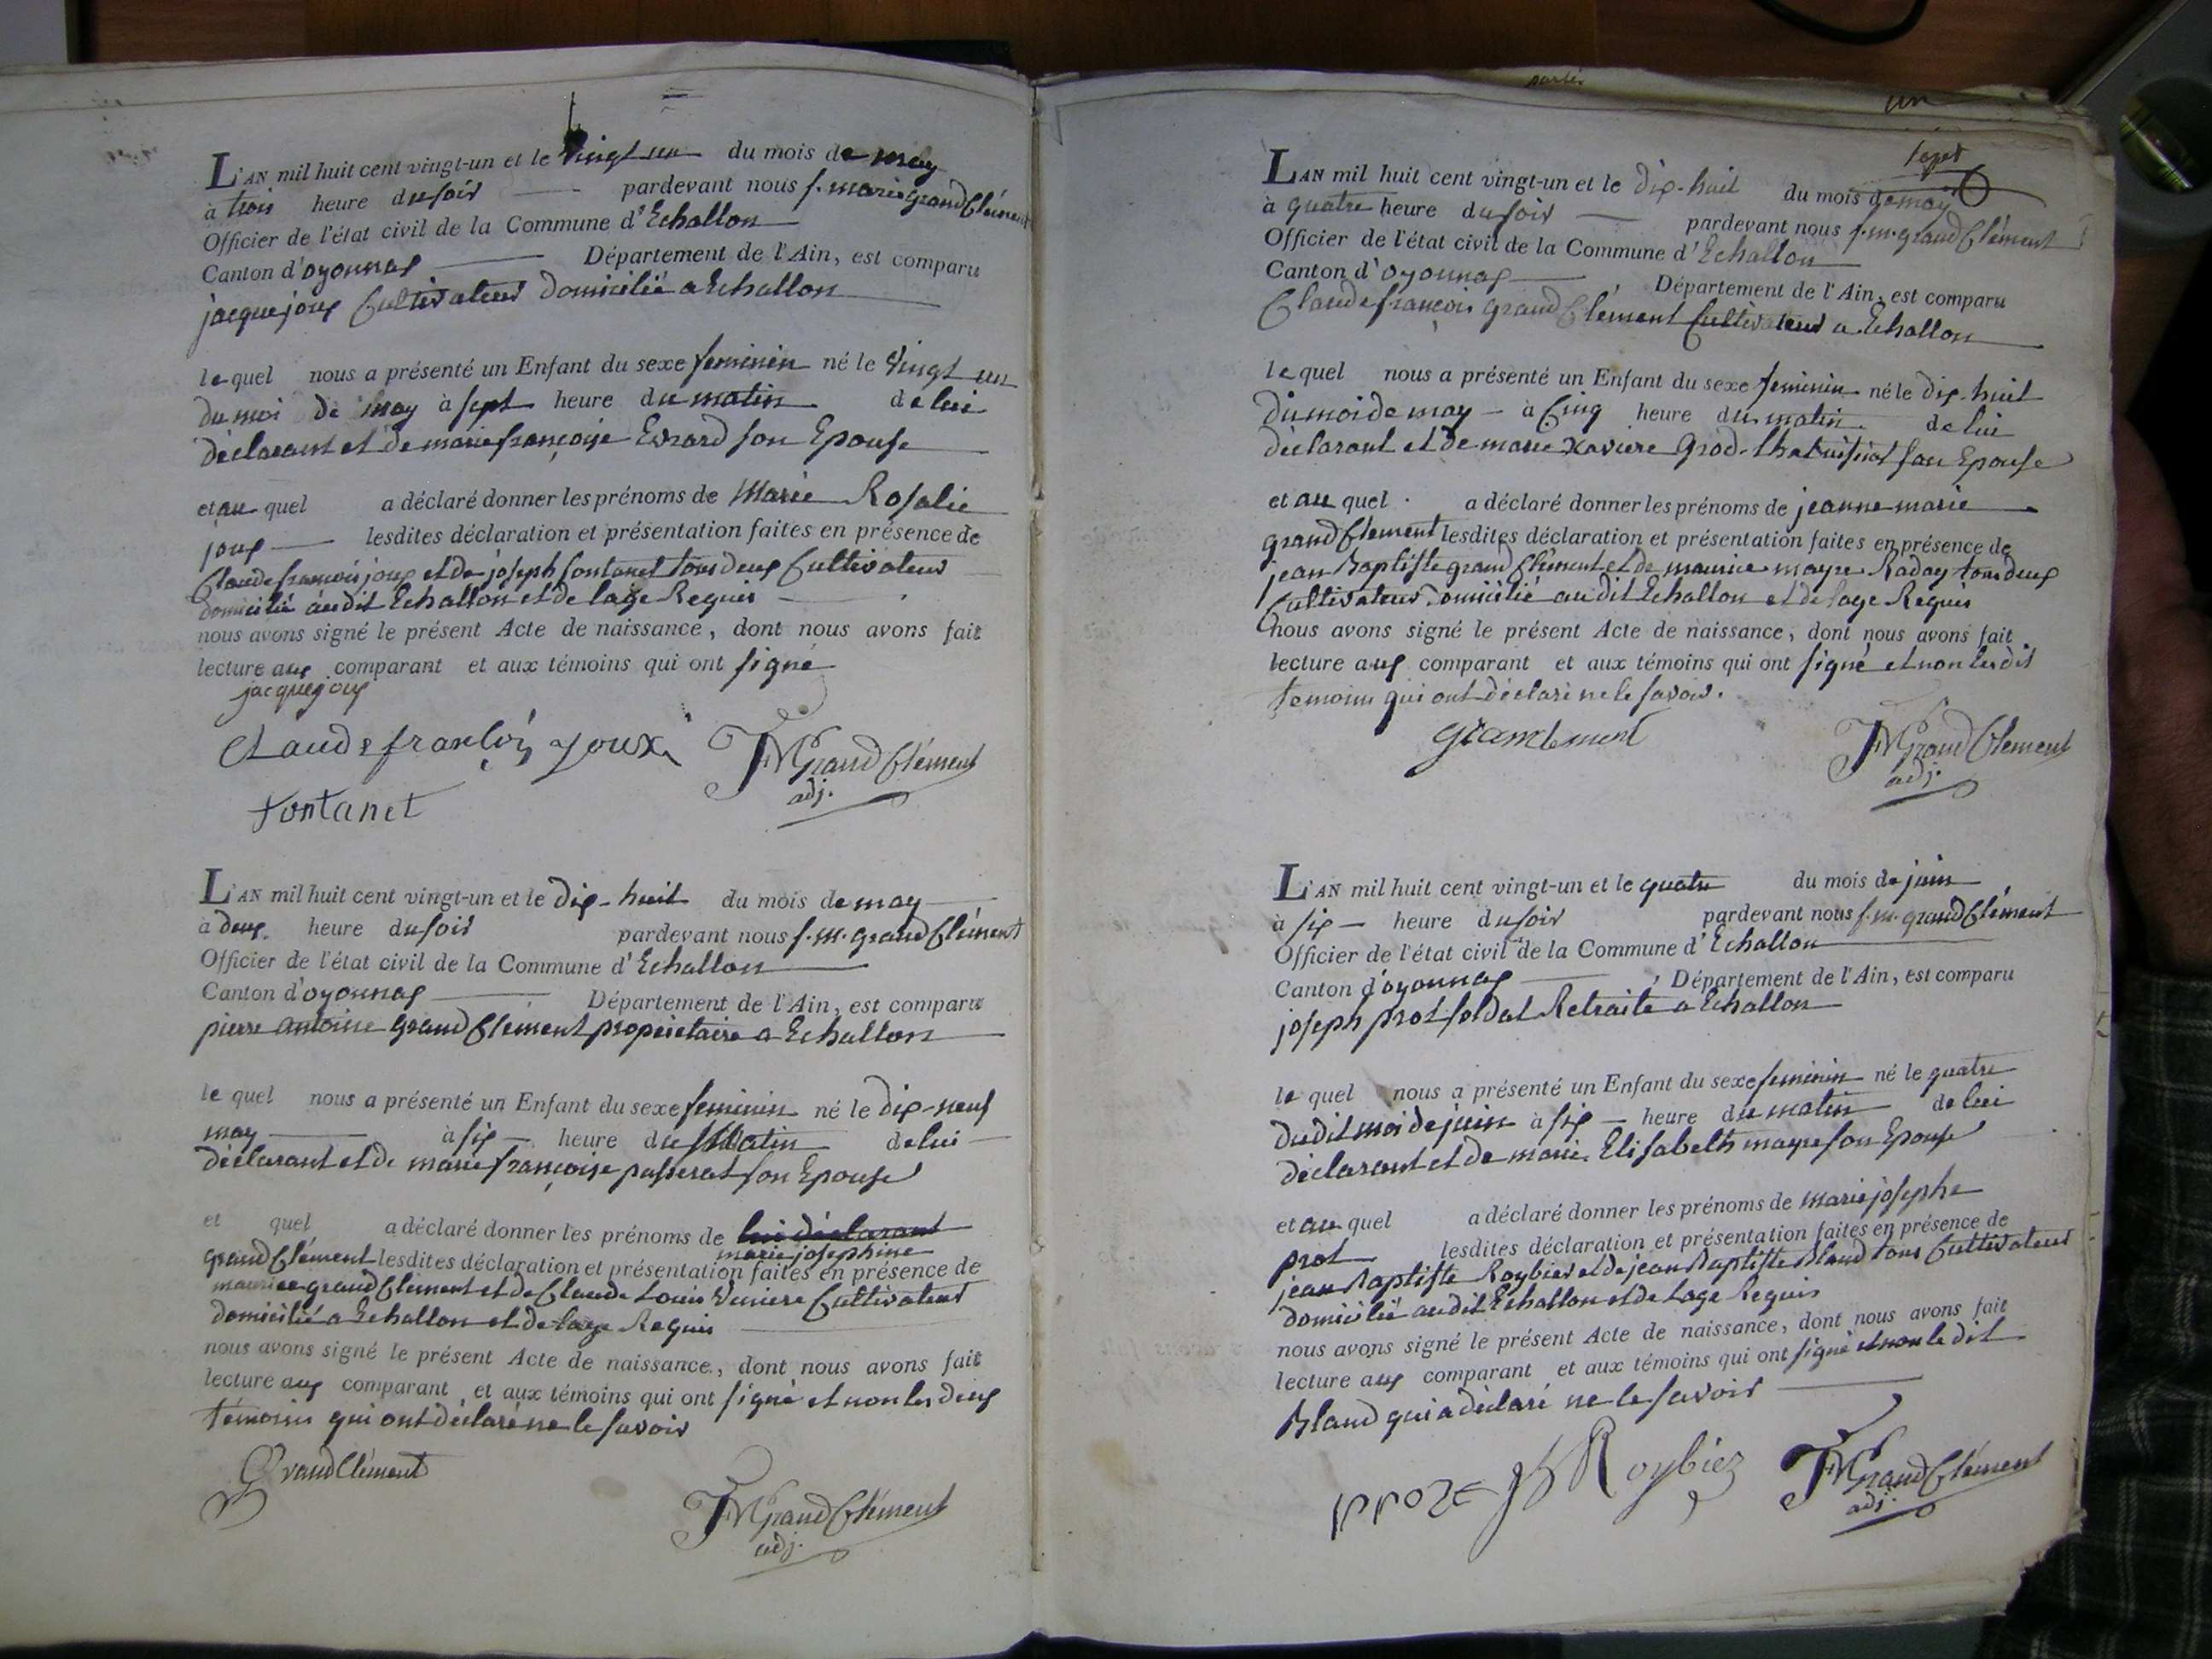 L'AN mil huit cent vingt-un et le vingt un du mois de may
à trois heure du soir pardevant nous f. marie grand Clément
Officier de l'état civil de la Commune d'Echallon
Canton d'oyonnax Département de l'Ain, est comparu
jacque joux Cultivateur domicilié a Echallon
le quel nous a présenté un Enfant du sexe feminin né le vingt un
du moi de may à sept heure du matin de lui
déclarant et de marie françoise Evrard son Epouse
et au quel a déclaré donner les prénoms de Marie Rosalie
joux lesdites déclaration et présentation faites en présence de
Claude francois joux et de joseph fontanet tous deux Cultivateur
domicilié audit Echallon et de lage Requis
nous avons signé le présent Acte de naissance, dont nous avons fait
lecture aux comparant et aux témoins qui ont signé
jacque joux
Claude françois joux
fontanet
FMGrandClément
adj.
L'AN mil huit cent vingt-un et le dix-huit du mois de may
à deux heure du soir pardevant nous f. m. grand Clément
Officier de l'état civil de la Commune d'Echallon
Canton d'oyonnax Département de l'Ain, est comparu
pierre antoine grand Clément propriétaire a Echallon
le quel nous a présenté un Enfant du sexe feminin né le dix-neuf
may à six heure du Matin de lui
déclarant et de marie françoise passerat son Epouse
et quel a déclaré donner les prénoms de lui déclarant
marie josephine
grand Clément lesdites déclaration et présentation faites en présence de
maurice grand Clement et de Claude Louis Cultivateur
domicilié a Echallon et de lage Requis
nous avons signé le présent Acte de naissance, dont nous avons fait
lecture aux comparant et aux témoins qui ont signé et non les deux
témoins qui ont déclaré ne le savoir
GrandClément
FMGrandClément
adj.
un
L'AN mil huit cent vingt-un et le dix-huit du mois de may
à quatre heure du soir pardevant nous f. m. grand Clément
Officier de l'état civil de la Commune d'Echallon
Canton d'oyonnax Département de l'Ain, est comparu
Claude françois grand Clément Cultivateur a Echallon
le quel nous a présenté un Enfant du sexe feminin né le dix-huit
du moi de may à Cinq heure du matin de lui
déclarant et de marie Xaviere son Epouse
et au quel a déclaré donner les prénoms de jeanne marie
grand Clement lesdites déclaration et présentation faites en présence de
jean Baptiste grand Clément et de maurice mayre tous deux
Cultivateur domicilié audit Echallon et de lage Requis
nous avons signé le présent Acte de naissance, dont nous avons fait
lecture aux comparant et aux témoins qui ont signé et non les dit
temoins qui ont déclaré ne le savoir.
FMGrandClement
adj.
L'AN mil huit cent vingt-un et le quatre du mois de juin
à six heure du soir pardevant nous f. m. grand Clément
Officier de l'état civil de la Commune d'Echallon
Canton d'oyonnax Département de l'Ain, est comparu
joseph prot soldat Retraite a Echallon
le quel nous a présenté un Enfant du sexe feminin né le quatre
dudit moi de juin à six heure du matin de lui
déclarant et de marie Elisabeth mayre son Epouse
et au quel a déclaré donner les prénoms de marie josephe
prot lesdites déclaration et présentation faites en présence de
jean Baptiste Roybier et de jean Baptiste Bland tous Cultivateur
domicilié audit Echallon et de lage Requis
nous avons signé le présent Acte de naissance, dont nous avons fait
lecture aux comparant et aux témoins qui ont signé et non le dit
Bland qui a déclaré ne le savoir
Roybier
FMGrandClément
adj.